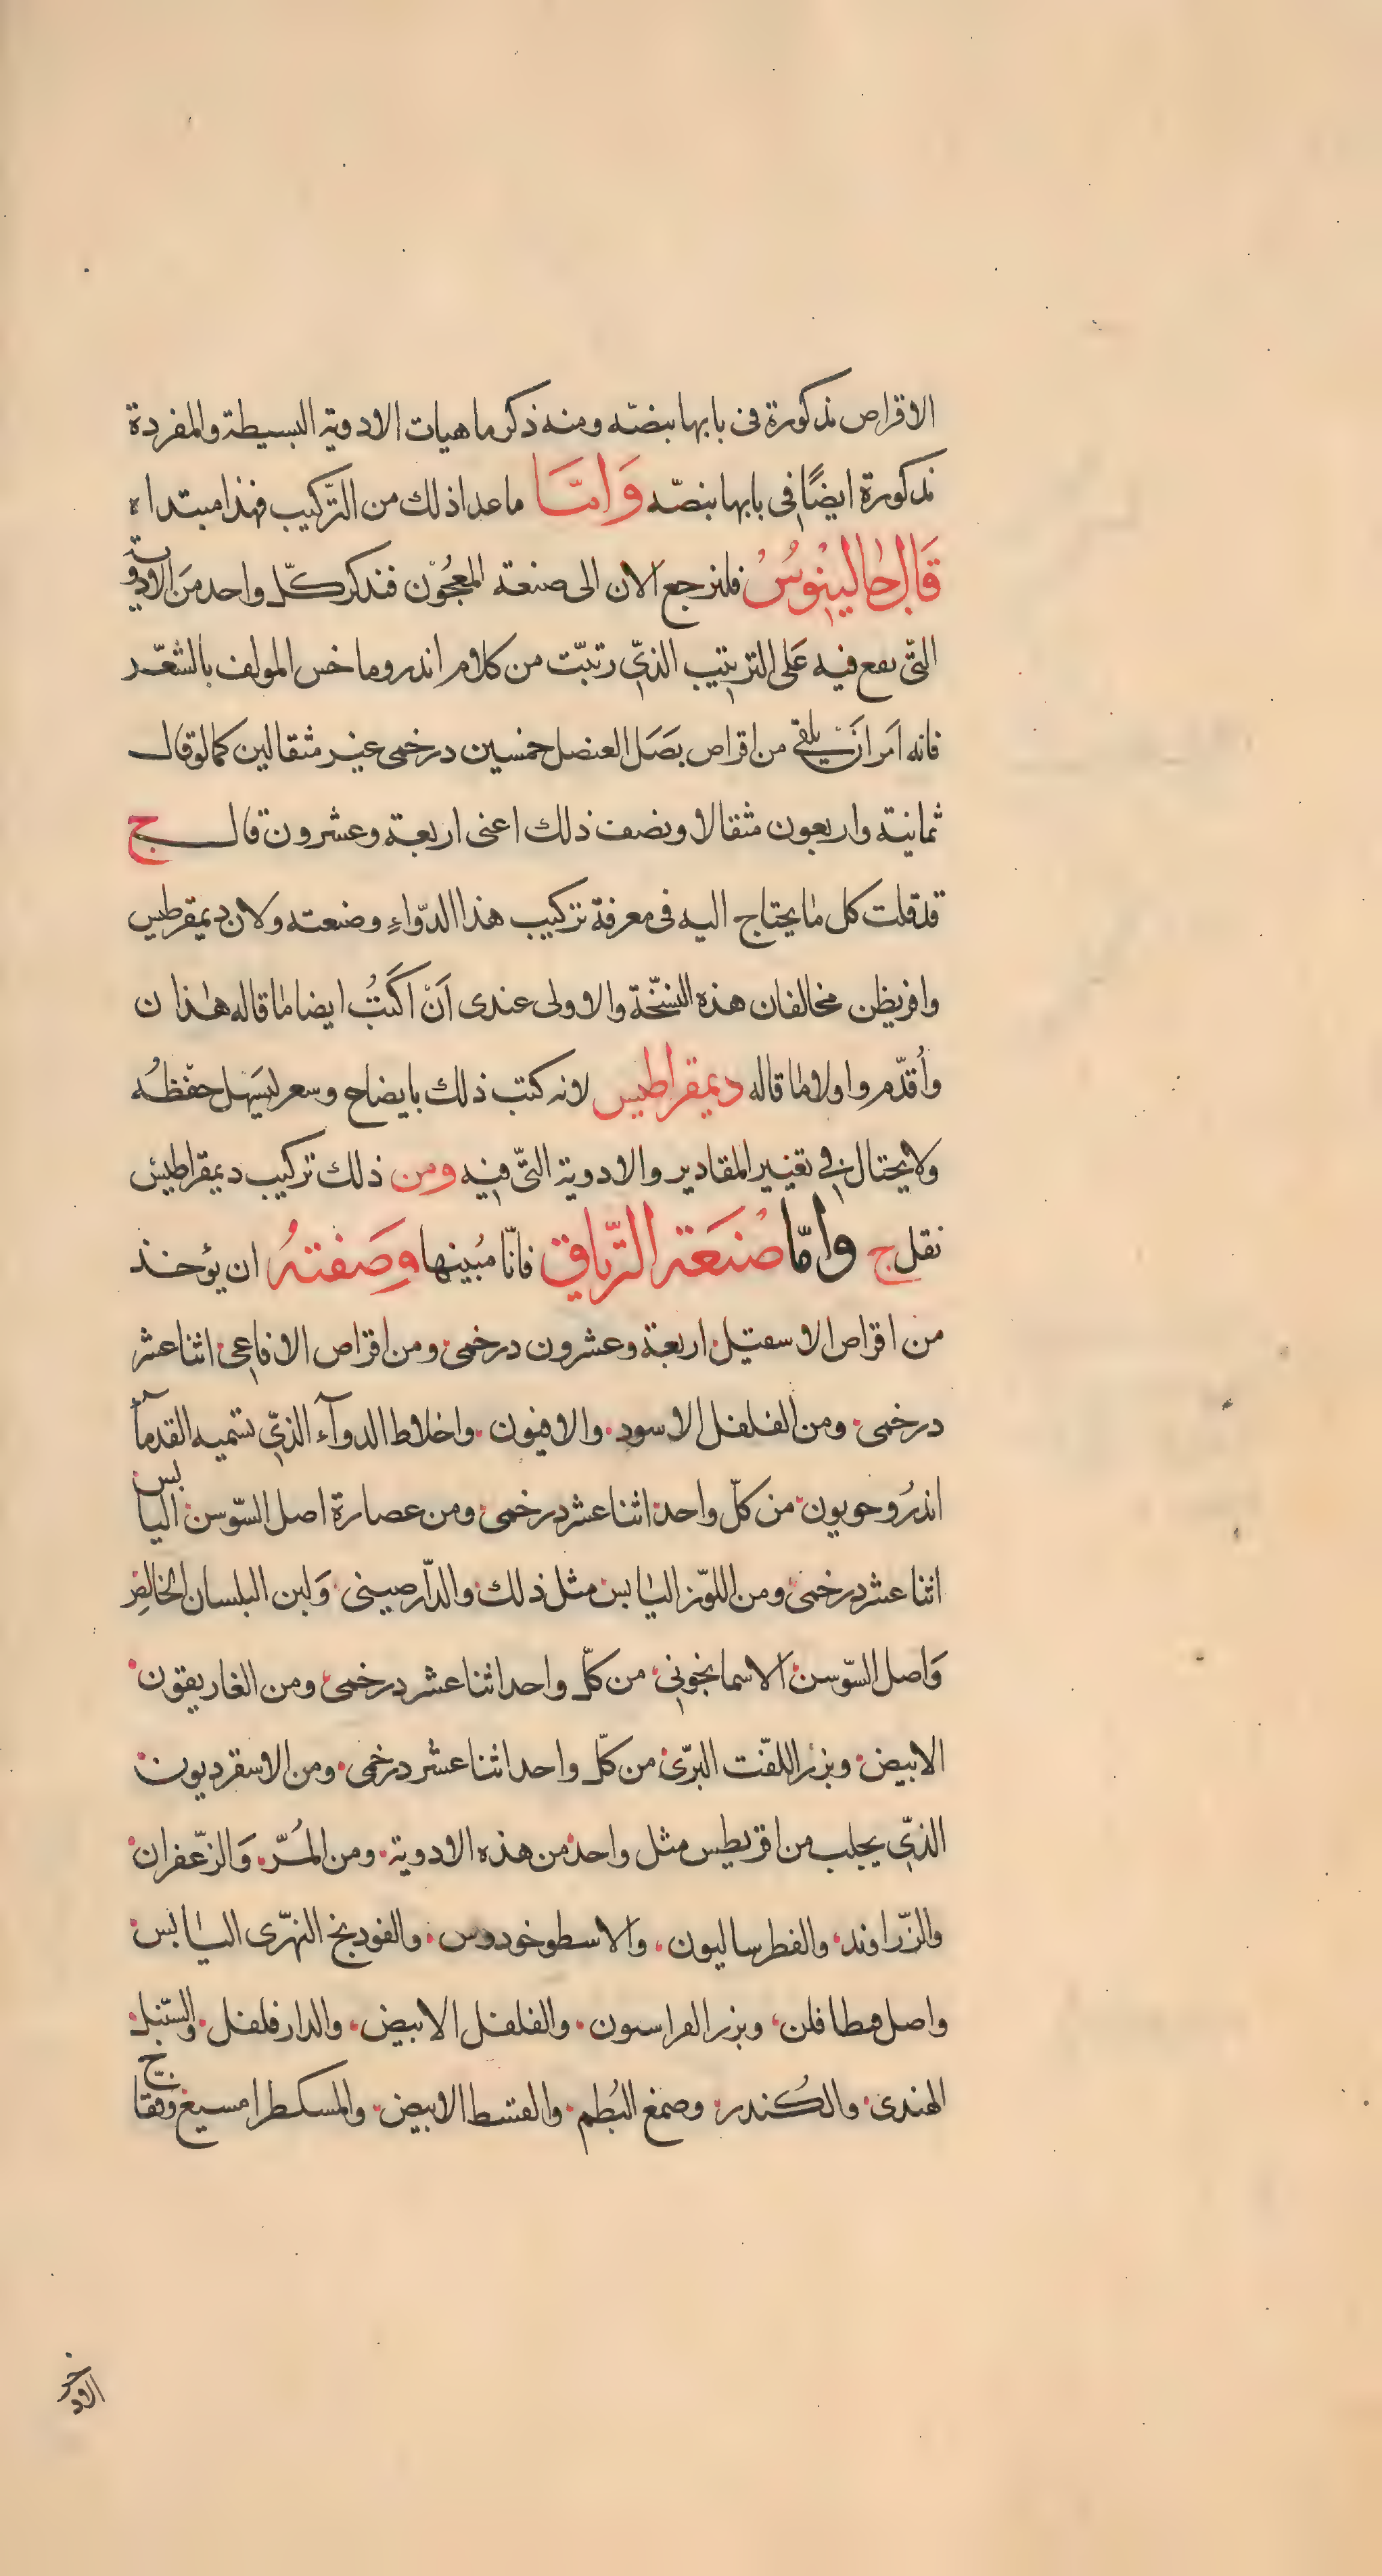 الاقراص نذكورة فى بابها بنصّه ومنه ذكر ماهيات الادوية البسيطة والمفردة
نذكورة ايضًا فى بابها بنصّه وَامّا ما عدا ذلك من التّركيب فهذا مبتداه
قَالَ جالينوسُ فلنرجع الان الى صنعة المعجُوّن فنذكر كلّ واحد منَ الادوية
التّى يقع فيه عَلى الترتيب الذىّ رتبّت من كلام اندروماخس المولف بالشعّر
فانه اَمر انَ يلقى من اقراص بصَل العنصل خمسين درخمى غير مثقالين كما لو قال
ثمانية واربعون مثقالا ونصف ذلك اعنى اربعة وعشرون قال ج
قد قلت كل ما يحتاج اليه فى معرفة تركيب هذا الدّواءِ وصنعته ولان ديمقرطيس
وافريظن مخالفان هذه النسّخة والاولى عندى اَنّ اكَتبُ ايضا ما قاله هاذان
واُقدّم واولا ما قاله ديمقراطيس لانه كتب ذلك بايضاح وسعر ليسَهل حفّظهُ
ولا يحتال فى تغيير المقادير والادوية التىّ فيه ومن ذلك تركيب ديمقراطيس
نقل ج وامّا صُنعَة التّرياق فانّا مُبينها وصَفتهُ ان يؤخذ
من اقراص الاسقيل اربعة وعشرون درخمى ومن اقراص الافاعى اثنا عشر
درخمى ومن الفلفل الاسود والافيون واخلاط الدوآء الذىّ تسّميه القدمآء
اندرُوحويون من كلّ واحد اثنا عشر درخمى ومن عصارة اصل السّوسن اليابس
اثنا عشر درخمى ومن اللوّز اليابس مثل ذلك والدّارصينى وَلبن البلسان الخالص
وَاصل السّوسن الاسمانجونى من كلّ واحد اثنا عشر درخمى ومن الغاريقون
الابيض وبزر اللفّت البرّى من كلّ واحد اثنا عشر درخمى ومن الاسقرديون
الذىّ يجلب من اقريطس مثل واحد من هذه الادوية ومن المُرّ وَالزّعفران
والزّراوند والفطرساليون والاسطوخودوس والفوديخ النهّرى اليابس
واصل مطافلن وبزر الفراسون والفلفل الابيض والدارفلفل والسّنبل
الهندى والكُندر وصمغ البُطم والقسط الابيض والمسكطرا مسيغ وفقاحّ
الاذخر